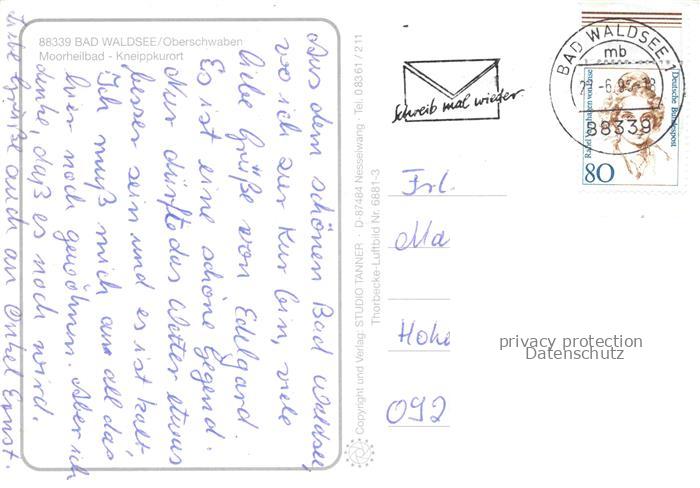 88339 BAD WALDSEE/Oberschwaben
Moorheilbad - Kneippkurort
Aus dem schönen Bad Waldsee,
wo ich zur Kur bin, viele
liebe Grüße von Edelgard.
Es ist eine schöne Gegend.
Nur dürfte das Wetter etwas
besser sein und es ist kalt,
Ich muß mich an all das
hier noch gewöhnen. Aber ich
denke, daß es noch wird.
Liebe Grüße auch an Onkel Ernst.
Copyright und Verlag: STUDIO TANNER · D-87484 Nesselwang · Tel. 0 83 61 / 2 11
Thorbecke-Luftbild Nr. 6881-3
Schreib mal wieder
BAD WALDSEE 1
mb
88339
Deutsche Bundespost
80
Frl.
Ma
Hohe
092
privacy protection
Datenschutz